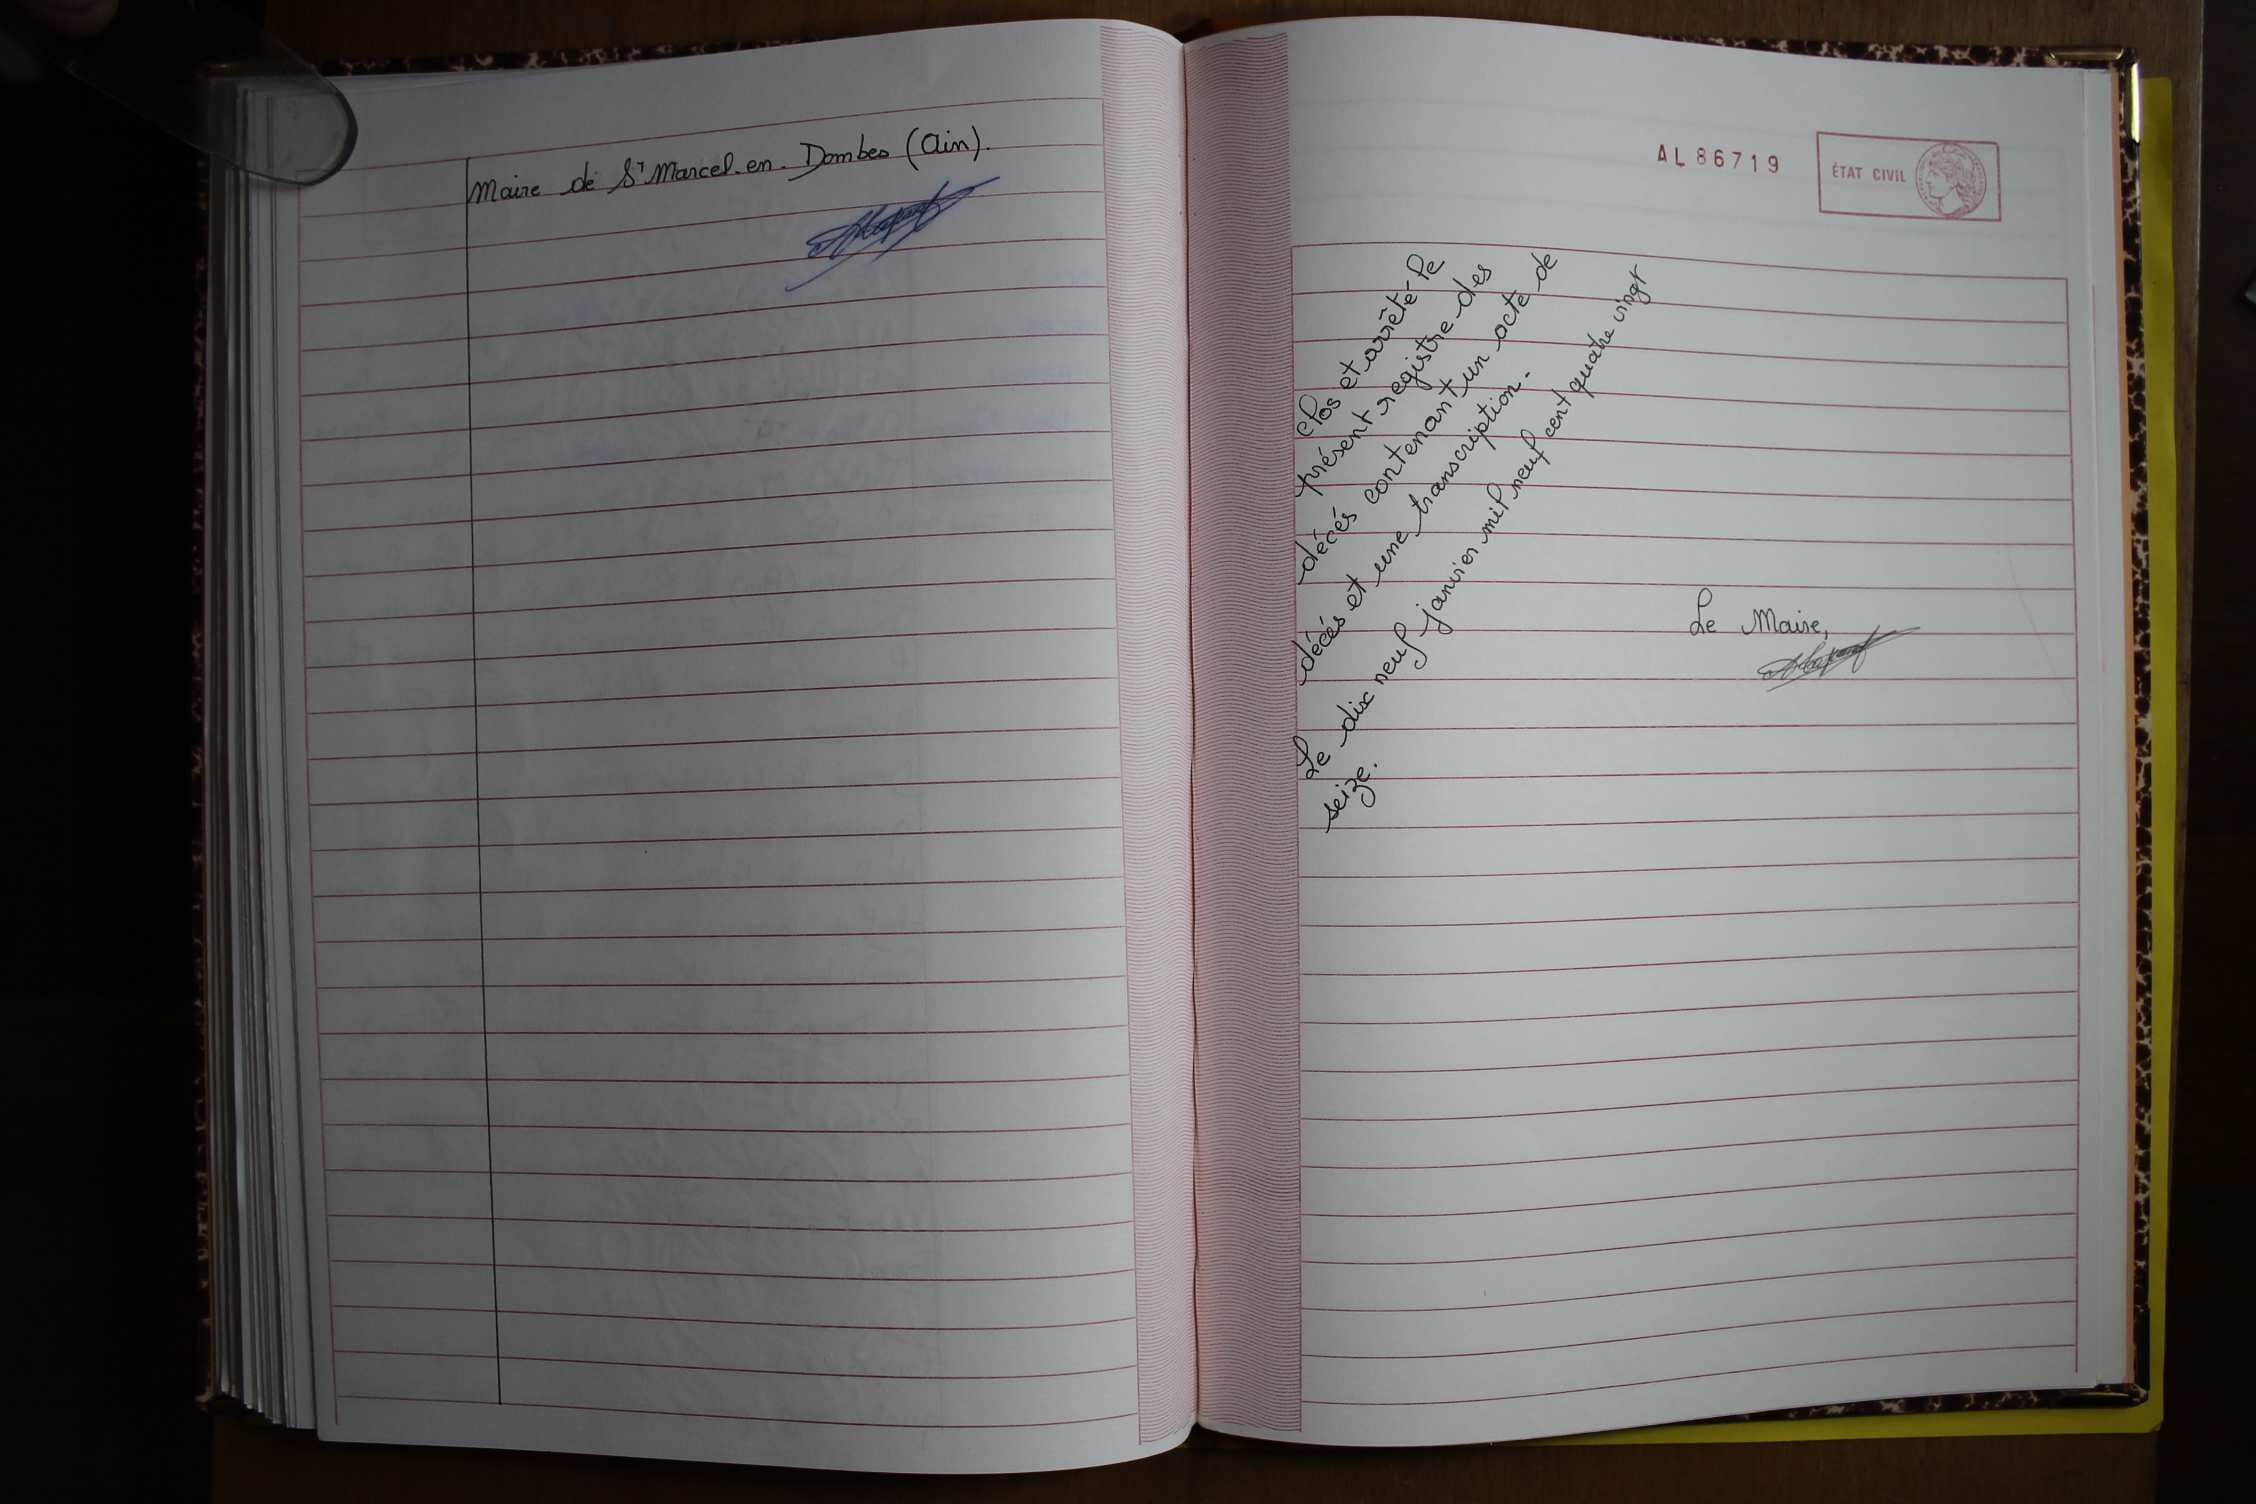 Maire de St Marcel.en. Dombes (Ain).
AL 86719
ÉTAT CIVIL
Clos et arrêté le
présent registre des
décès contenant un acte de
décés et une transcription.
Le dix neuf janvier mil neuf cent quatre vingt
seize.
Le Maire,